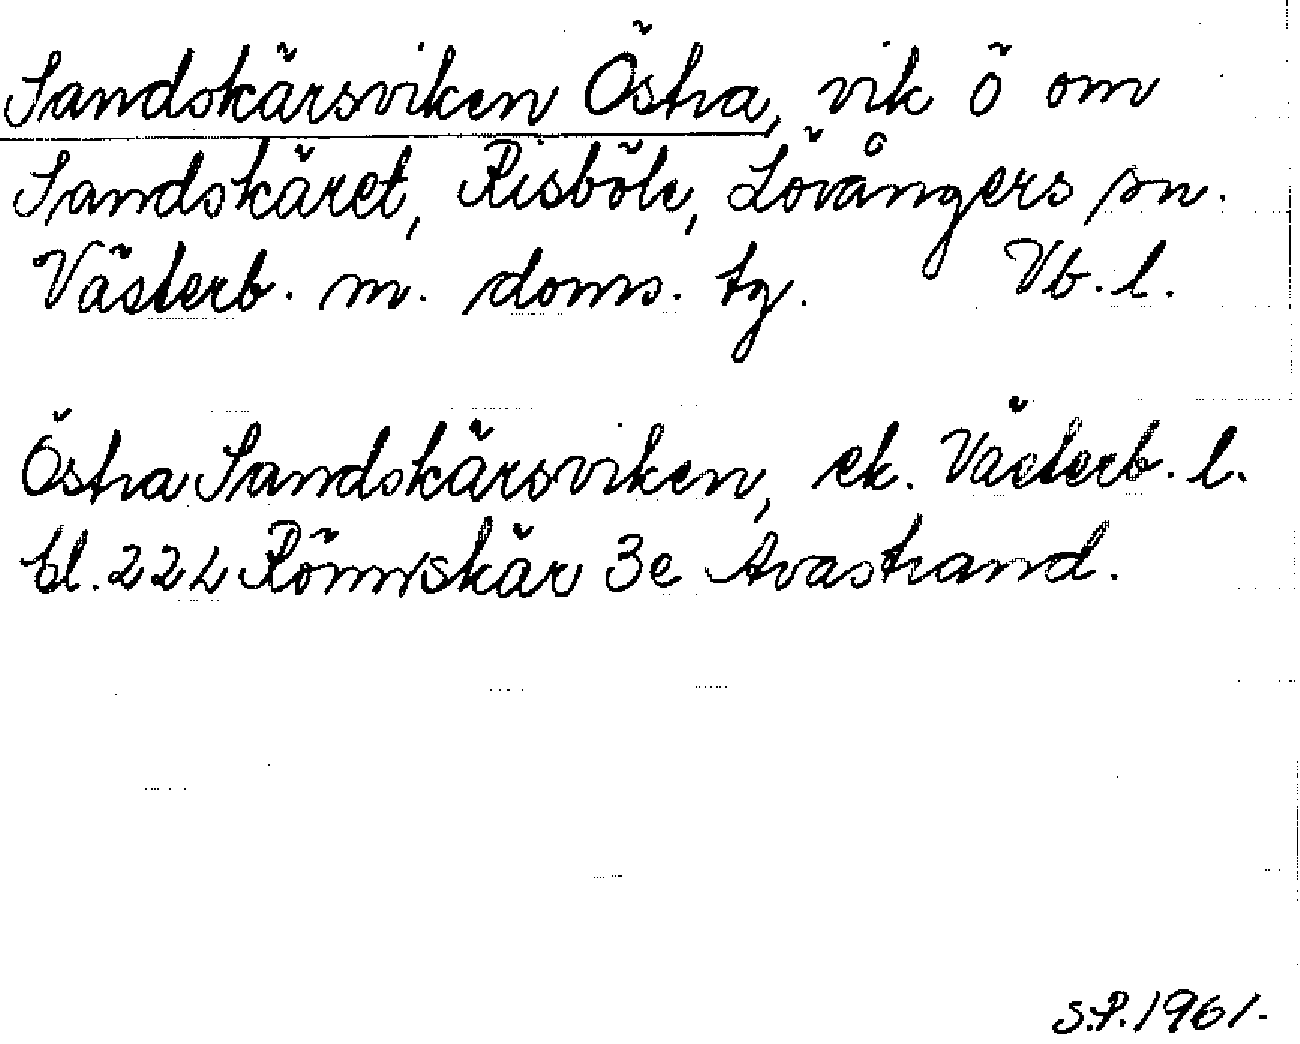 Sandskärsviken Östra, vik ö om
Sandskäret, Risböle, Lövångers sn.
Västerb. n. doms. tg. Vb. l.
Östra Sandskärsviken, ek. Västerb. l.
bl. 22L Rönnskär 3e Avastrand.
S.P. 1961.